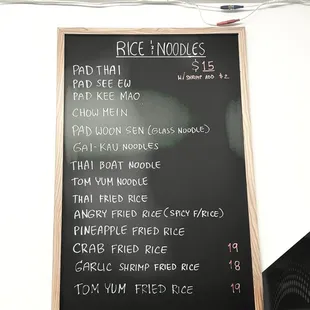 RICE & NOODLES
$15
W/ SHRIMP ADD $2
PAD THAI
PAD SEE EW
PAD KEE MAO
CHOW MEIN
PAD WOON SEN (GLASS NOODLE)
GAI-KAU NOODLES
THAI BOAT NOODLE
TOM YUM NOODLE
THAI FRIED RICE
ANGRY FRIED RICE (SPICY F/RICE)
PINEAPPLE FRIED RICE
CRAB FRIED RICE 19
GARLIC SHRIMP FRIED RICE 18
TOM YUM FRIED RICE 19